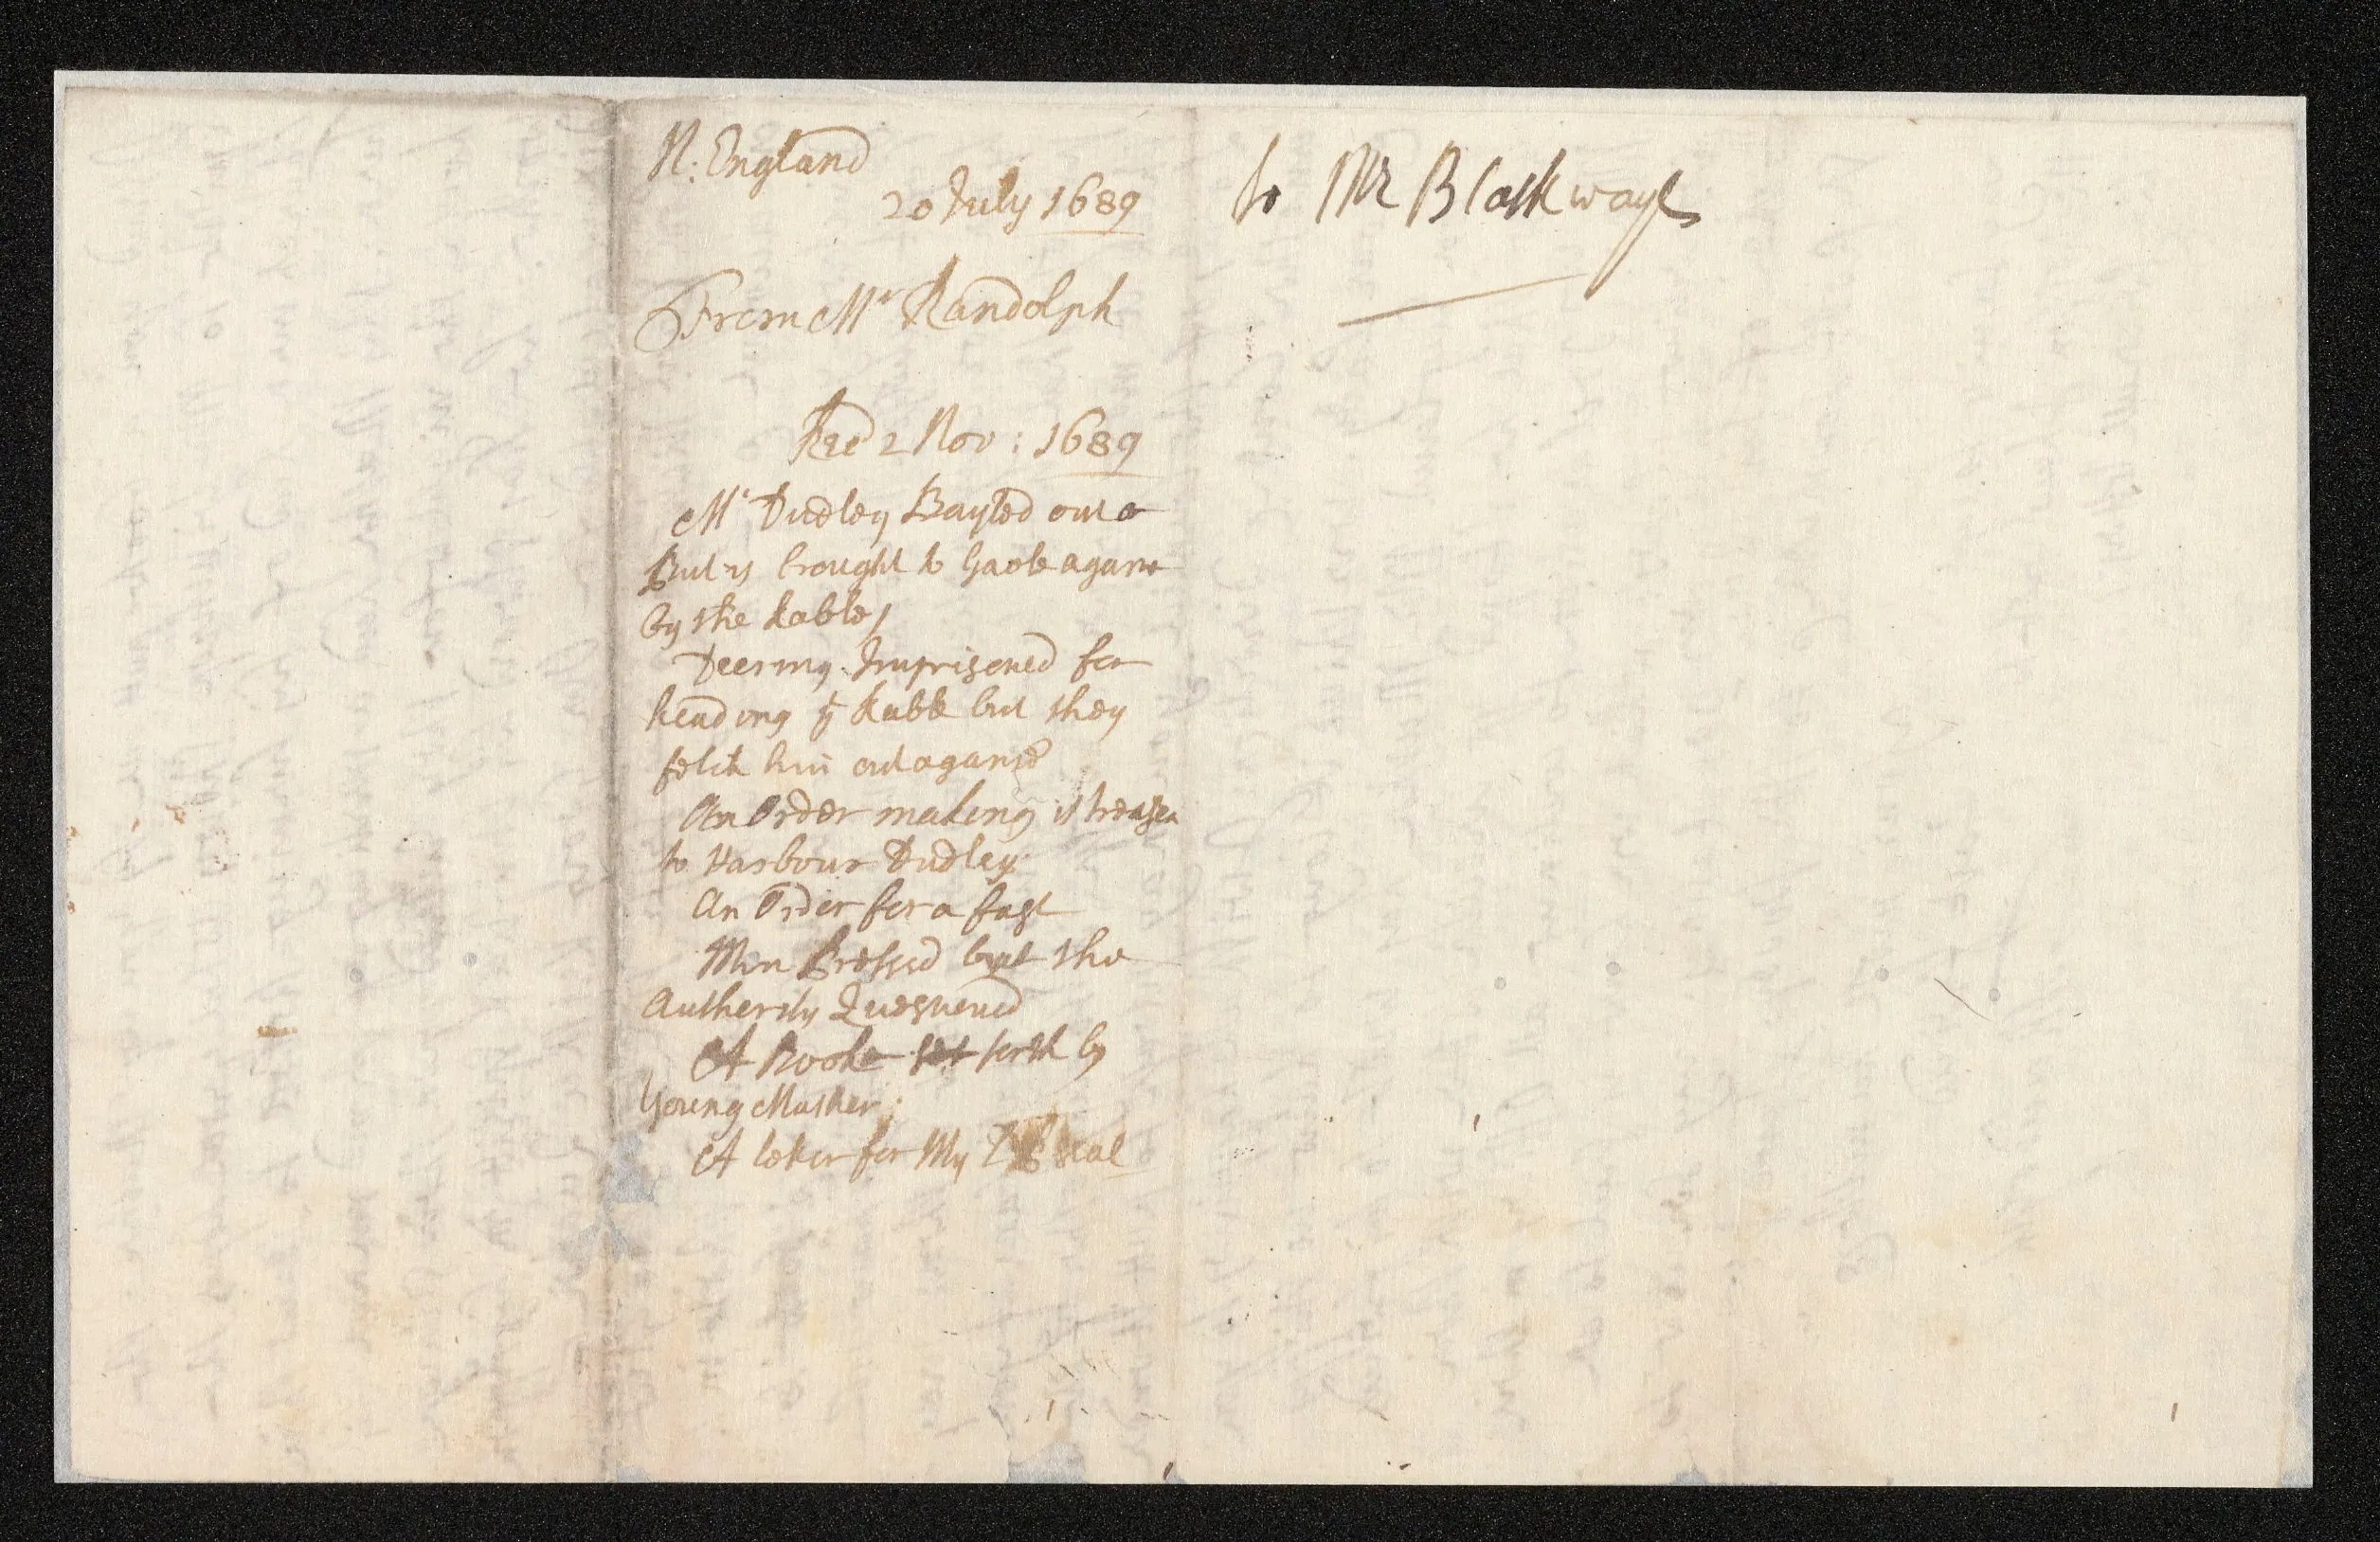 N: England
20 July 1689
From Mr Randolph
Recd 2 Nov: 1689
Mr Dudley Bayled out
But is brought to Gaole againe
by the Rable
Deering Imprisoned for
heading ye Rable but they
fetch him out againe
An Order making it treason
to Harbour Dudley
An Order for a fast
Men Pressed but the
Authority Questioned
A Booke set forth by
Young Mather
A letter for My
to Mr Blathwayt